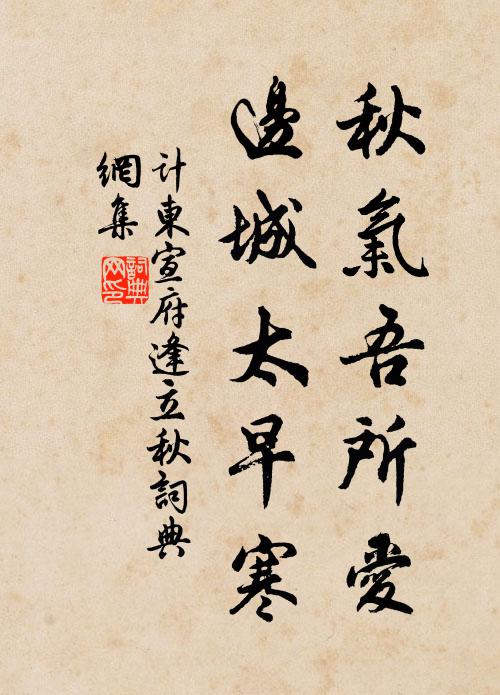 秋氣吾所愛
邊城太早寒
计東宣府逢立秋詞典
網集
詞典網印